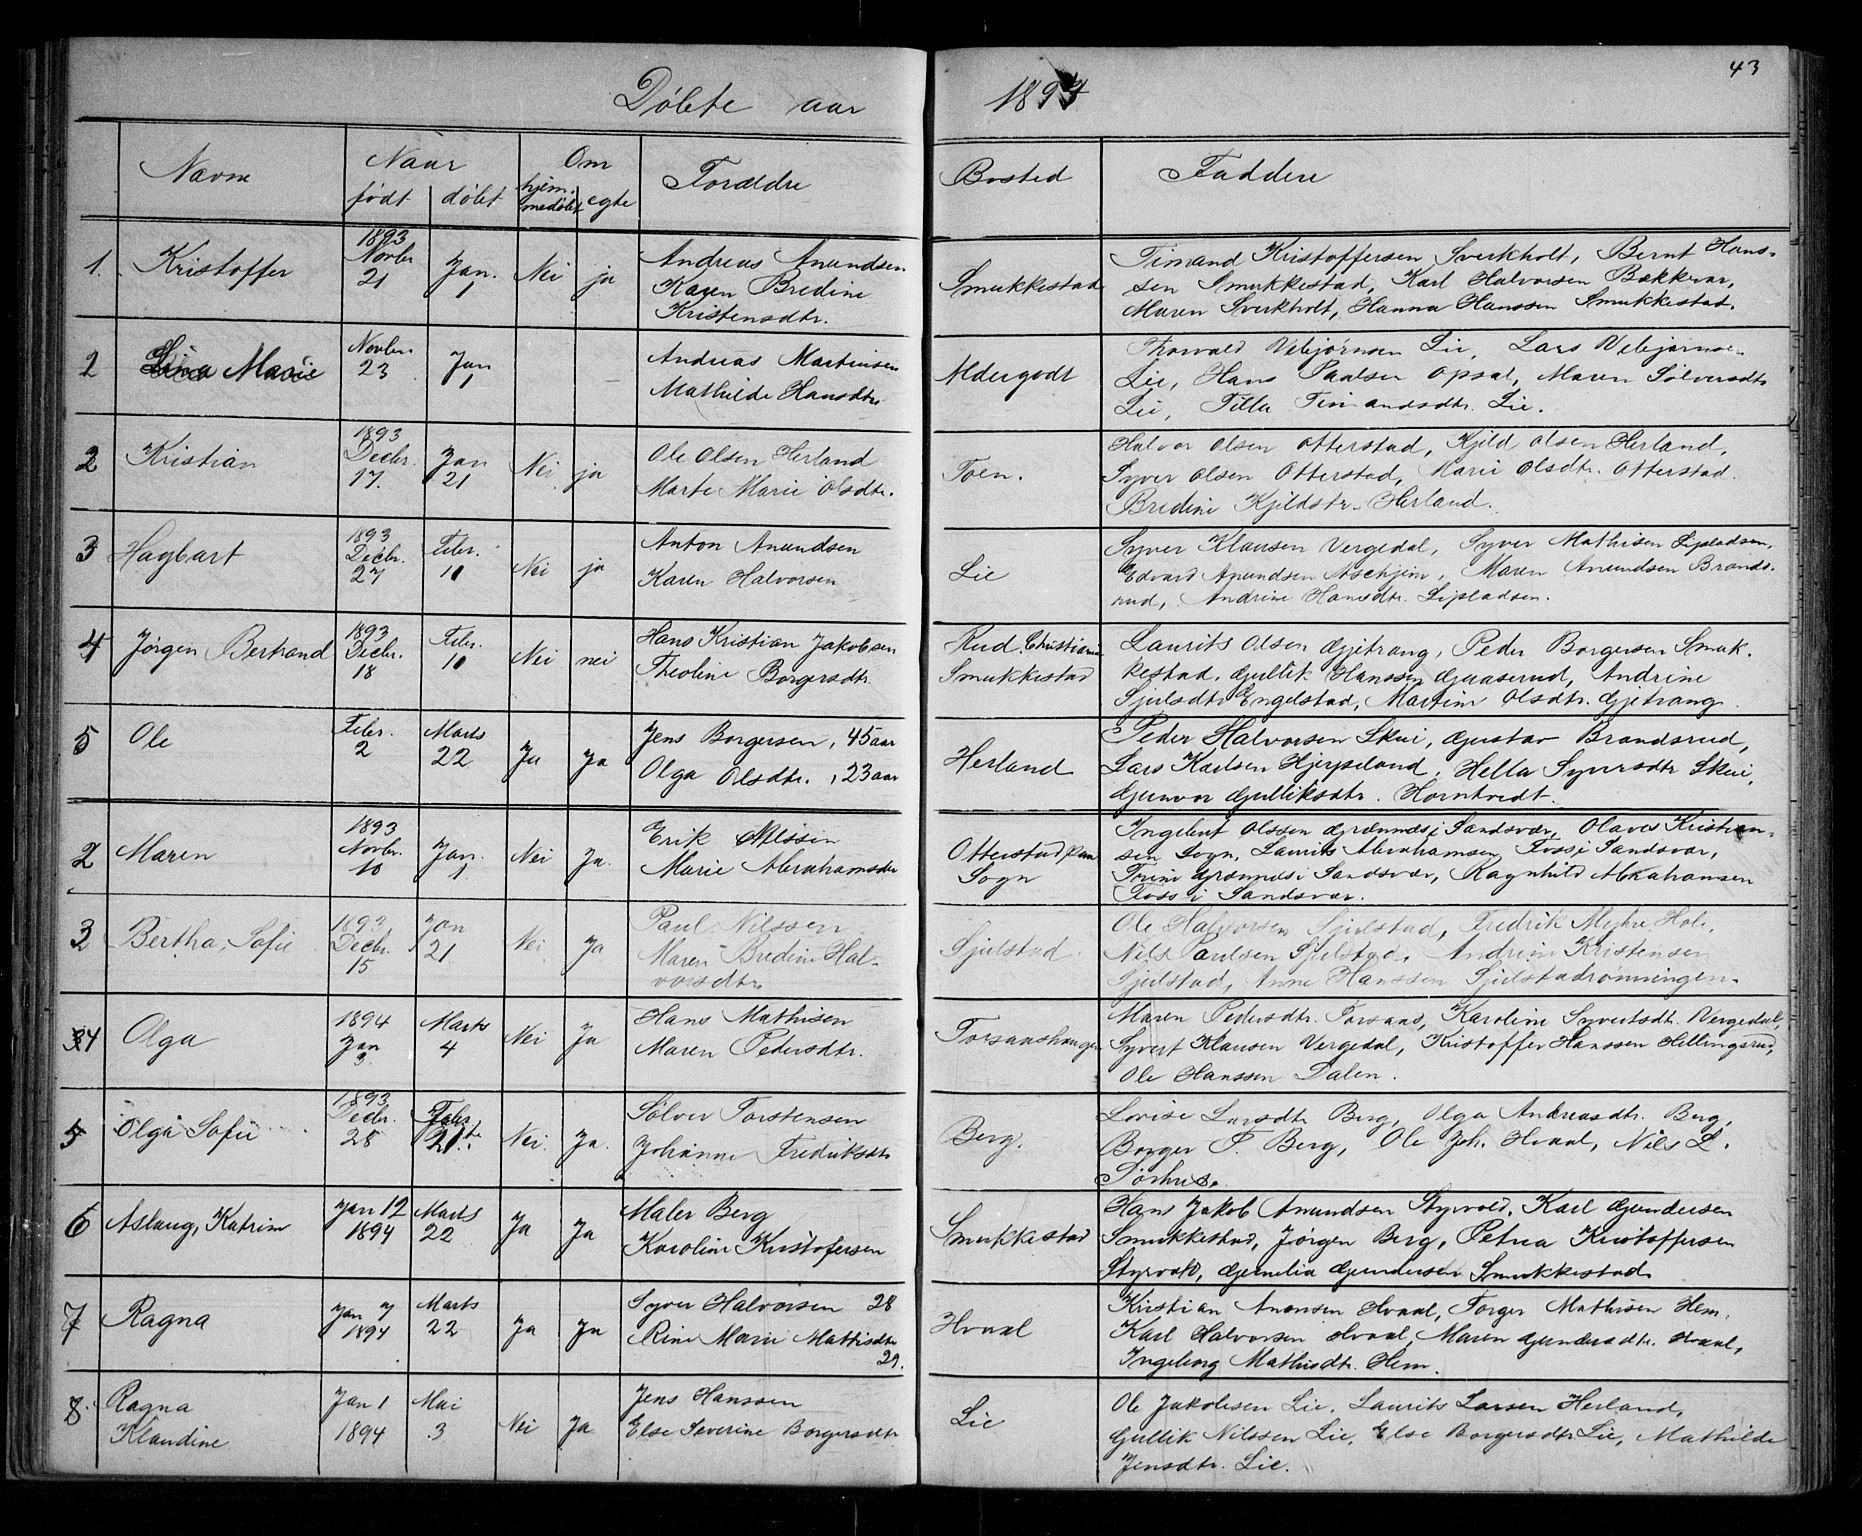 43
Døbte aar 1894
Navne
Naar
født døbt
Om
hjemmedøbt egte
Forældre
Bosted
Faddere
1. Kristoffer 1893 Novbr 21 Jan. 1 Nei ja
Andreas Anundsen
Karen Bredine
Kristensdtr.
Smukkestad
Timand Kristoffersen Sverkholt, Bernt Hans-
sen Smukkestad, Karl Halvorsen Bakkerar,
Maren Sverkholt, Hanna Hanssen Smukkestad.
2 Lina Marie Novbr. 23 Jan 1
Andreas Martinsen
Mathilde Hansdtr
Aldergodt
Thorvald Vebjørnsen Lie, Lars Vebjørnsen
Lie, Hans Paalsen Opsal, Maren Sølversdtr
Lie, Tilla Timandsdtr. Lie.
2 Kristian 1893 Decbr. 17. Jan 21 Nei ja
Ole Olsen Herland
Marte Marie Olsdtr.
Toen.
Halvor Olsen Otterstad, Kjild Olsen Herland,
Syver Olsen Otterstad, Marie Olsdtr. Otterstad.
Bredine Kjildstr. Herland.
3 Hagbart 1893 Decbr. 27 Febr. 11 Nei ja
Anton Anundsen
Karen Halvorsen
Lie
Syver Klausen Vergedal, Syver Mathisen Lipladsen,
Edvard Anundsen Aschjim, Maren Anundsen Brands-
rud, Andrine Hansdtr. Lipladsen.
4 Jørgen Bertrand 1893 Decbr. 18 Febr. 11 Nei nei
Hans Kristian Jakobsen
Theoline Borgersdtr.
Rud, Christians
Smukkestad
Laurits Olsen Gjetrang, Peder Borgersen Smuk-
kestad, Gullik Hanssen Gaaserud, Andrine
Sjulsdtr Engelstad, Martine Olsdtr. Gjetrang.
5 Ole Febr. 2 Marts 22 Ja Ja
Jens Borgersen, 45 aar
Olga Olsdtr., 23 aar
Herland
Peder Halvorsen Skui, Gustav Brandsrud,
Lars Karlsen Hjerpeland, Hella Syversdtr Skui,
Gunvor Gulliksdtr. Horntvedt.
2 Maren 1893 Novbr. 10 Jan. 1 Nei Ja.
Erik Nilssen
Marie Abrahamsdtr
Otterstad
Sogn
Ingebrt Olssen Grønnæs i Sandsvær, Olaves Kristian-
sen Sogn, Laurits Abrahamsen Foss i Sandsvær,
Trine Grønnæs i Sandsvær, Ragnhild Abrahamsen
Foss i Sandsvær.
3 Bertha, Sofie 1893 Decbr. 15 Jan 21 Nei Ja
Paul Nilssen
Maren Bredine Hal-
vorsdtr.
Sjulstad.
Ole Halvorsen Sjulstad, Fredrik Myhre, Hole,
Nils Paulsen Sjulstad, Andrine Kristensen
Sjulstad, Anne Hanssen Sjulstadrønningen.
4 Olga 1894 Jan 3 Marts 4 Nei Ja
Hans Mathisen
Maren Pedersdtr.
Torsanshaugen
Maren Pedersdtr. Torsans, Karoline Syvertsdtr. Vergedal,
Syvert Klausen Vergedal, Kristoffer Hanssen Hellingsrud,
Ole Hanssen Dalen.
5 Olga Sofie 1893 Decbr. 28 Febr 21 Nei Ja.
Sølver Torstensen
Johanne Fredriksdtr
Berg.
Lovise Larsdtr Berg, Olga Andreasdtr. Berg,
Borger T. Berg, Ole Joh. Hvaal, Nils L.
Sørhus.
6 Aslaug, Katrine Jan 12 1894 Marts 22 Ja Ja
Maler Berg
Karoline Kristofersen
Smukkestad
Hans Jakob Anundsen Styrvold, Karl Gundersen
Smukkestad, Jørgen Berg, Petrea Kristoffersen
Styrvold, Gunelia Gundersen Smukkestad
7 Ragna Jan 7 1894 Marts 22 Ja Ja
Syver Halvorsen 28
Rine Marie Mathisdtr
29.
Hvaal
Kristian Anonsen Hvaal, Torger Mathisen Hem.
Karl Halvorsen Hvaal, Maren Gundersdtr. Hvaal,
Ingeborg Mathisdtr. Hem.
8. Ragna Klaudine Jan 1 1894 Mai 3 Nei Ja
Jens Hanssen
Else Severine Borgersdtr
Lie
Ole Jakobsen Lie, Laurits Larsen Herland,
Gullik Nilssen Lie, Else Borgersdtr Lie, Mathilde
Jensdtr. Lie.